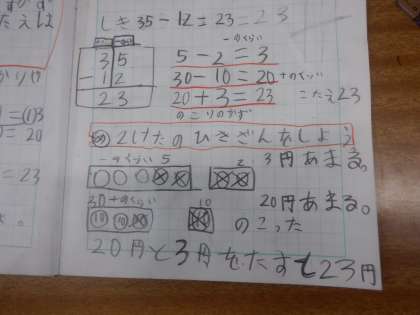 しき 35-12=23=23
一のくらい
35
-12
23
5-2=3
30-10=20 十のくらい
20+3=23 こたえ23
のこりのかず
2けたのひきざんをしよう
一のくらい 5
2
3円あまる。
30 十のくらい
10
10 10
20円あまる。
のこった
20円と3円をたすて23円
たえは
=23
= 20